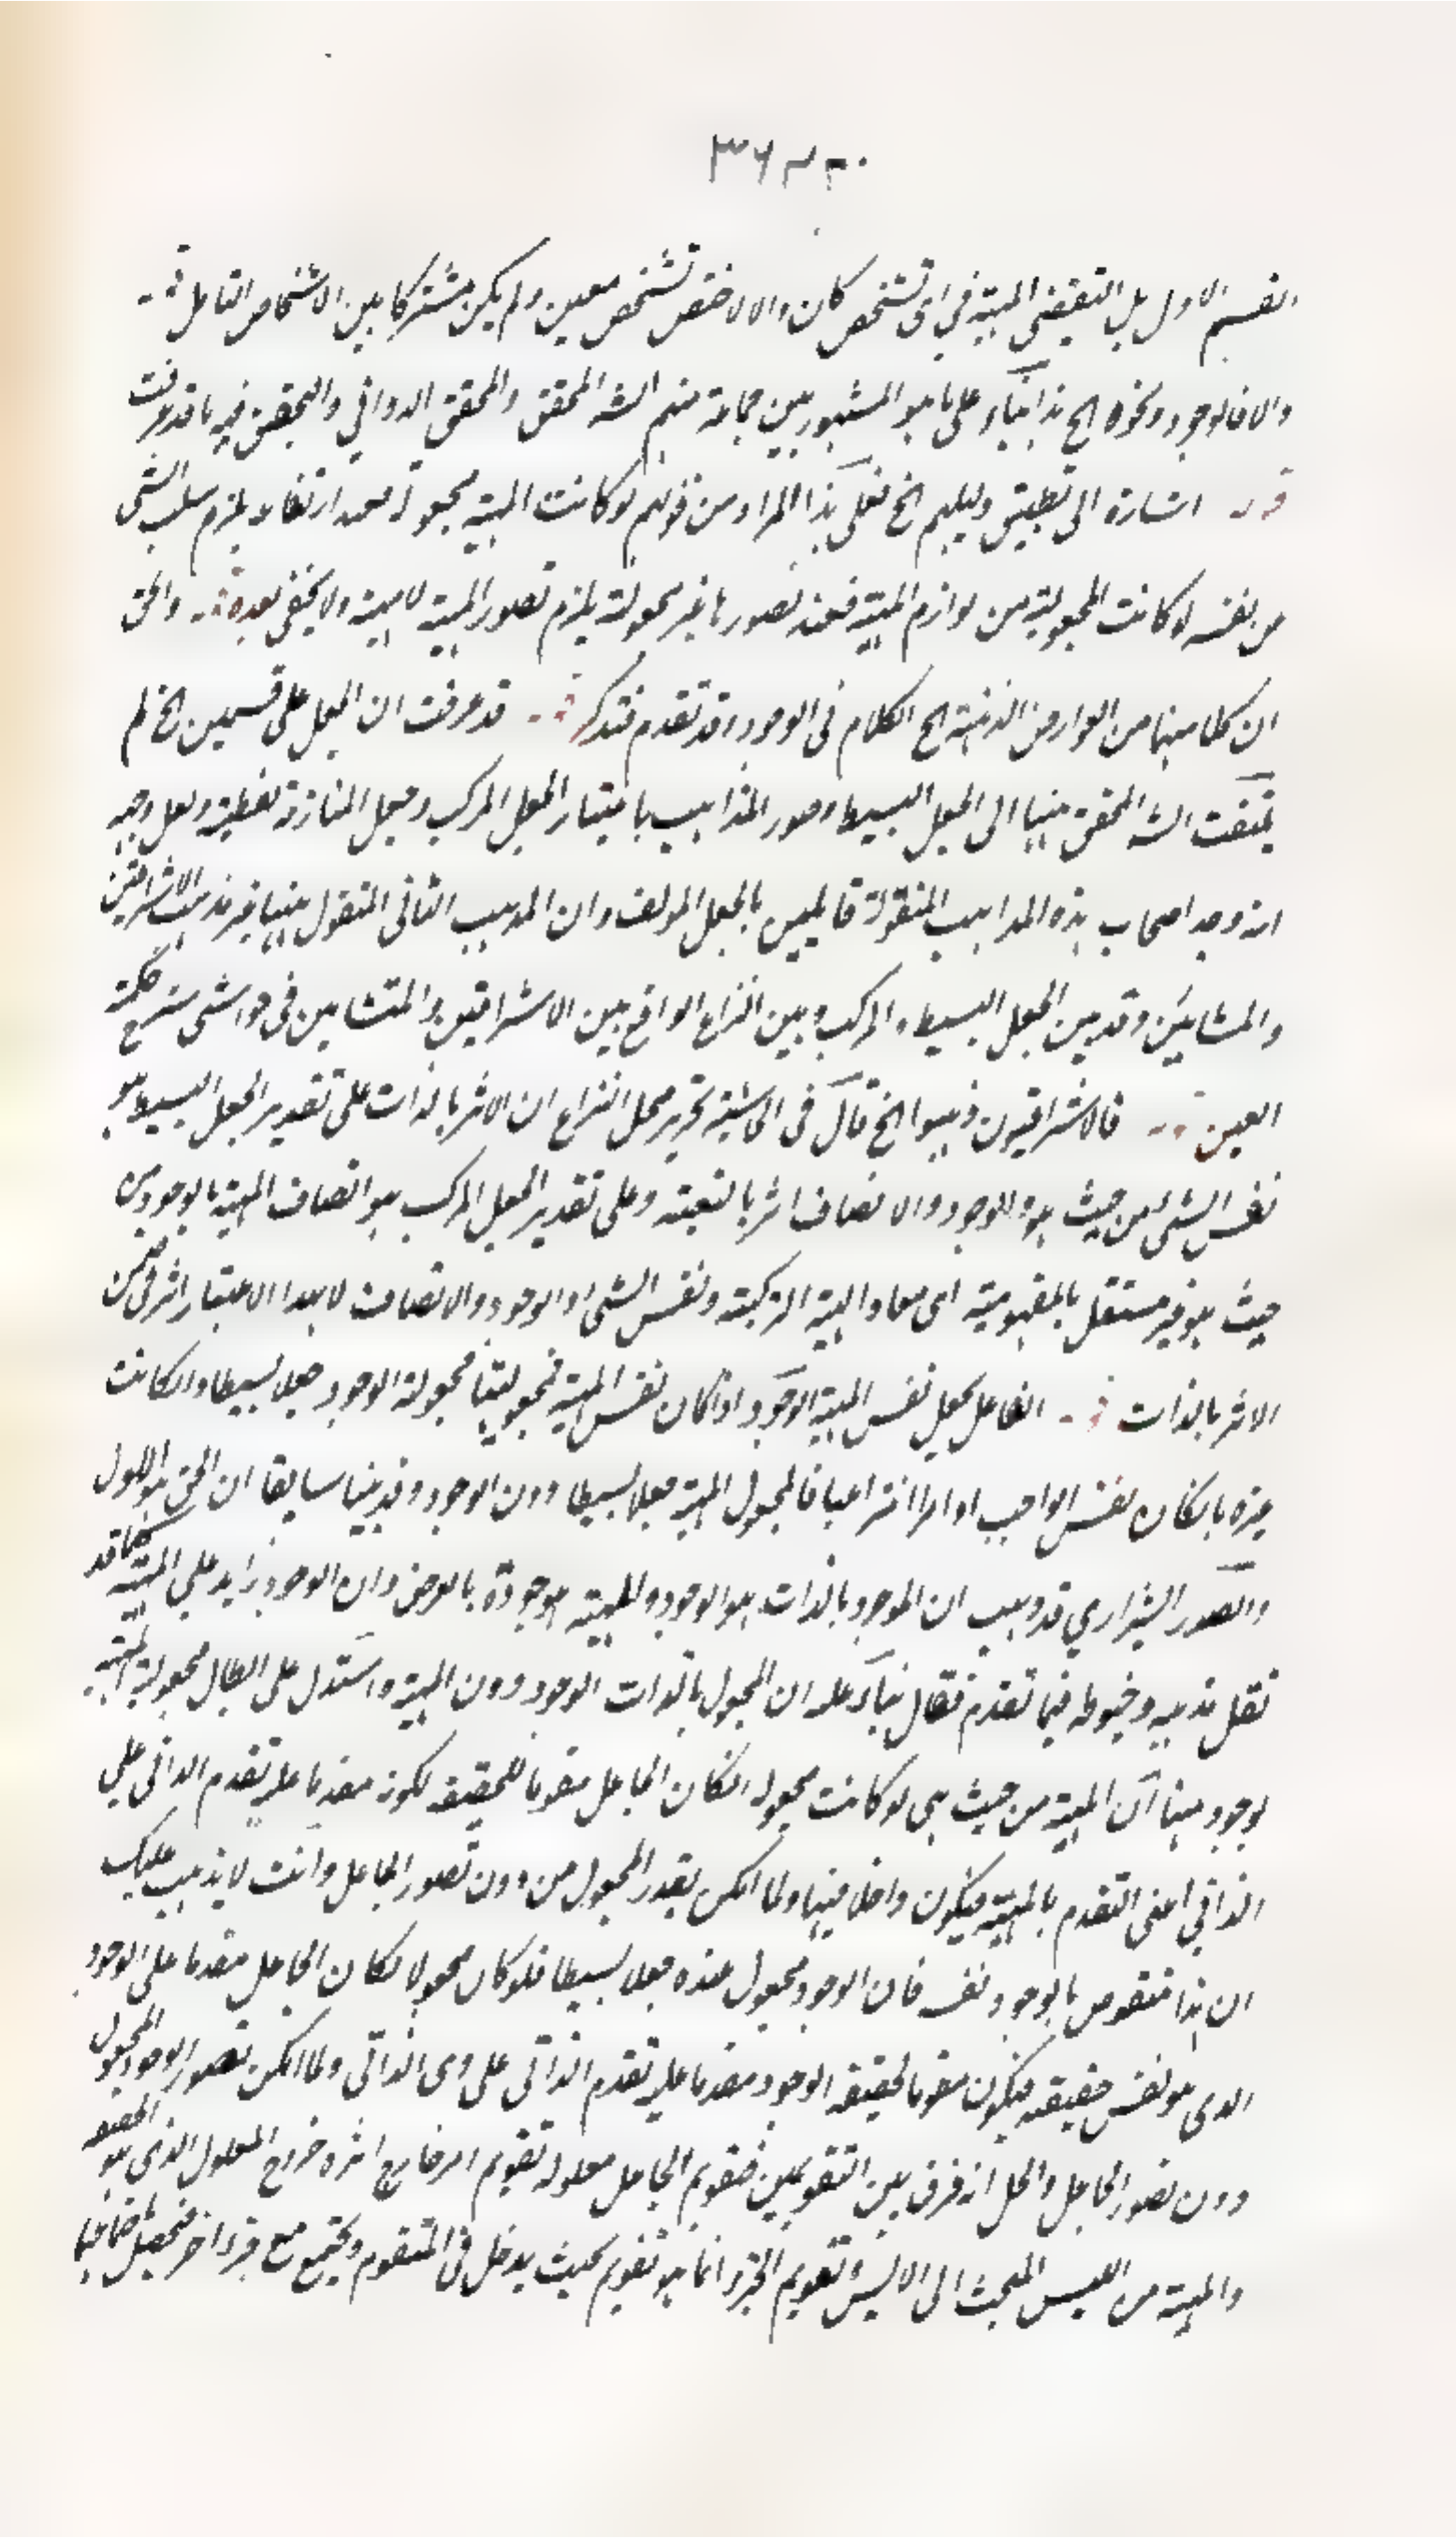 القسم الاول بل التقتضى المهية في اى تشخص كان والا لاختص تشخص معين ولم يكن مشتركا بين الاشخاص التامل قوله
والا فالوجود ونحوه الخ هذا بناء على ما هو المشهور بين جماعة منهم الشه المحقق والمحقق الدواني والتحقيق فيه ما قد عرفت
قوله اشارة الى تطبيق دليلهم الخ فعلى هذا المراد من قولهم لو كانت المهية مجعولة فعند ارتفاعه يلزم سلب الشى
عن نفسه لو كانت المجعولية من لوازم المهية فعند تصورها غير مجعولة يلزم تصور المهية لا مهية ولا يخفى بعده قوله والحق
ان كلا منهما من العوارض الذهنية الخ الكلام فى الوجود وقد تقدم فتذكر قوله قد عرفت ان الجعل على قسمين الخ لم
يلتفت الشه المحقق ههنا الى الجعل البسيط وصور المذاهب باعتبار الجعل المركب وجعل المنازعة لفظية ولعل وجهه
انه وجد اصحاب هذه المذاهب المنقولة قايلين بالجعل المولف وان المذهب الثانى المنقول ههنا غير مذهب الاشراقين
والمشائين وقد بين الجعل البسيط والمركب وبين النزاع الواقع بين الاشراقين والمشائين فى حواشى شرح حكمة
العين قوله فالاشراقيون ذهبوا الخ قال فى الحاشية تحرير محل النزاع ان الاثر بالذات على تقدير الجعل البسيط هو
نفس الشى من حيث هو والوجود والاتصاف اثر بالتبعية وعلى تقدير الجعل المركب هو اتصاف المهية بالوجود من
حيث هو غير مستقل بالمفهومية اى مفاد الهية التركيبة ونفس الشى او الوجود والاتصاف لا بهذا الاعتبار اثر فى ضمن
الاثر بالذات قوله الفاعل يجعل نفس المهية الوجود اذا كان نفس المهية فمجعوليتها مجعولة الوجود جعلا بسيطا وان كانت
غيره بان كان نفس الواجب او امرا انتزاعيا فالمجعول المهية جعلا بسيطا دون الوجود وقد بينا سابقا ان الحق هو الاول
والصدر الشيرازي قد ذهب ان الموجود بالذات هو الوجود والمهية موجودة بالعرض وان الوجود زايد على المهية كما قد
نقل مذهبه وخبوطه فيما تقدم فقال بناء عليه ان المجعول بالذات الوجود دون المهية واستدل على ابطال مجعولية المهية
بوجوه منها ان المهية من حيث هى لو كانت مجعولة لكان الجاعل مقوما للحقيقة لكونه مقدما عليه تقدم الذاتى على
الذاتي اعنى التقدم بالمهية فيكون داخلا فيها ولما امكن تصور المجعول من دون تصور الجاعل وانت لا يذهب عليك
ان هذا منقوض بالوجود نفسه فان الوجود مجعول عنده جعلا بسيطا فلو كان مجعولا لكان الجاعل مقدما على الوجود
الذى هو نفس حقيقته فيكون مقوما لحقيقة الوجود مقدما عليه تقدم الذاتى على ذى الذاتى ولما امكن تصور الوجود المجعول
دون تصور الجاعل والحل انه فرق بين التقويمين فتقويم الجاعل معلوله تقويم امر خارج اثره خروج المعلول الذى هو الحقيقة
والمهية من الليس البحت الى الايس وتقويم الجزء انما هو تقويم بحيث يدخل فى المتقوم ويجتمع مع جزء اخر فيحصل